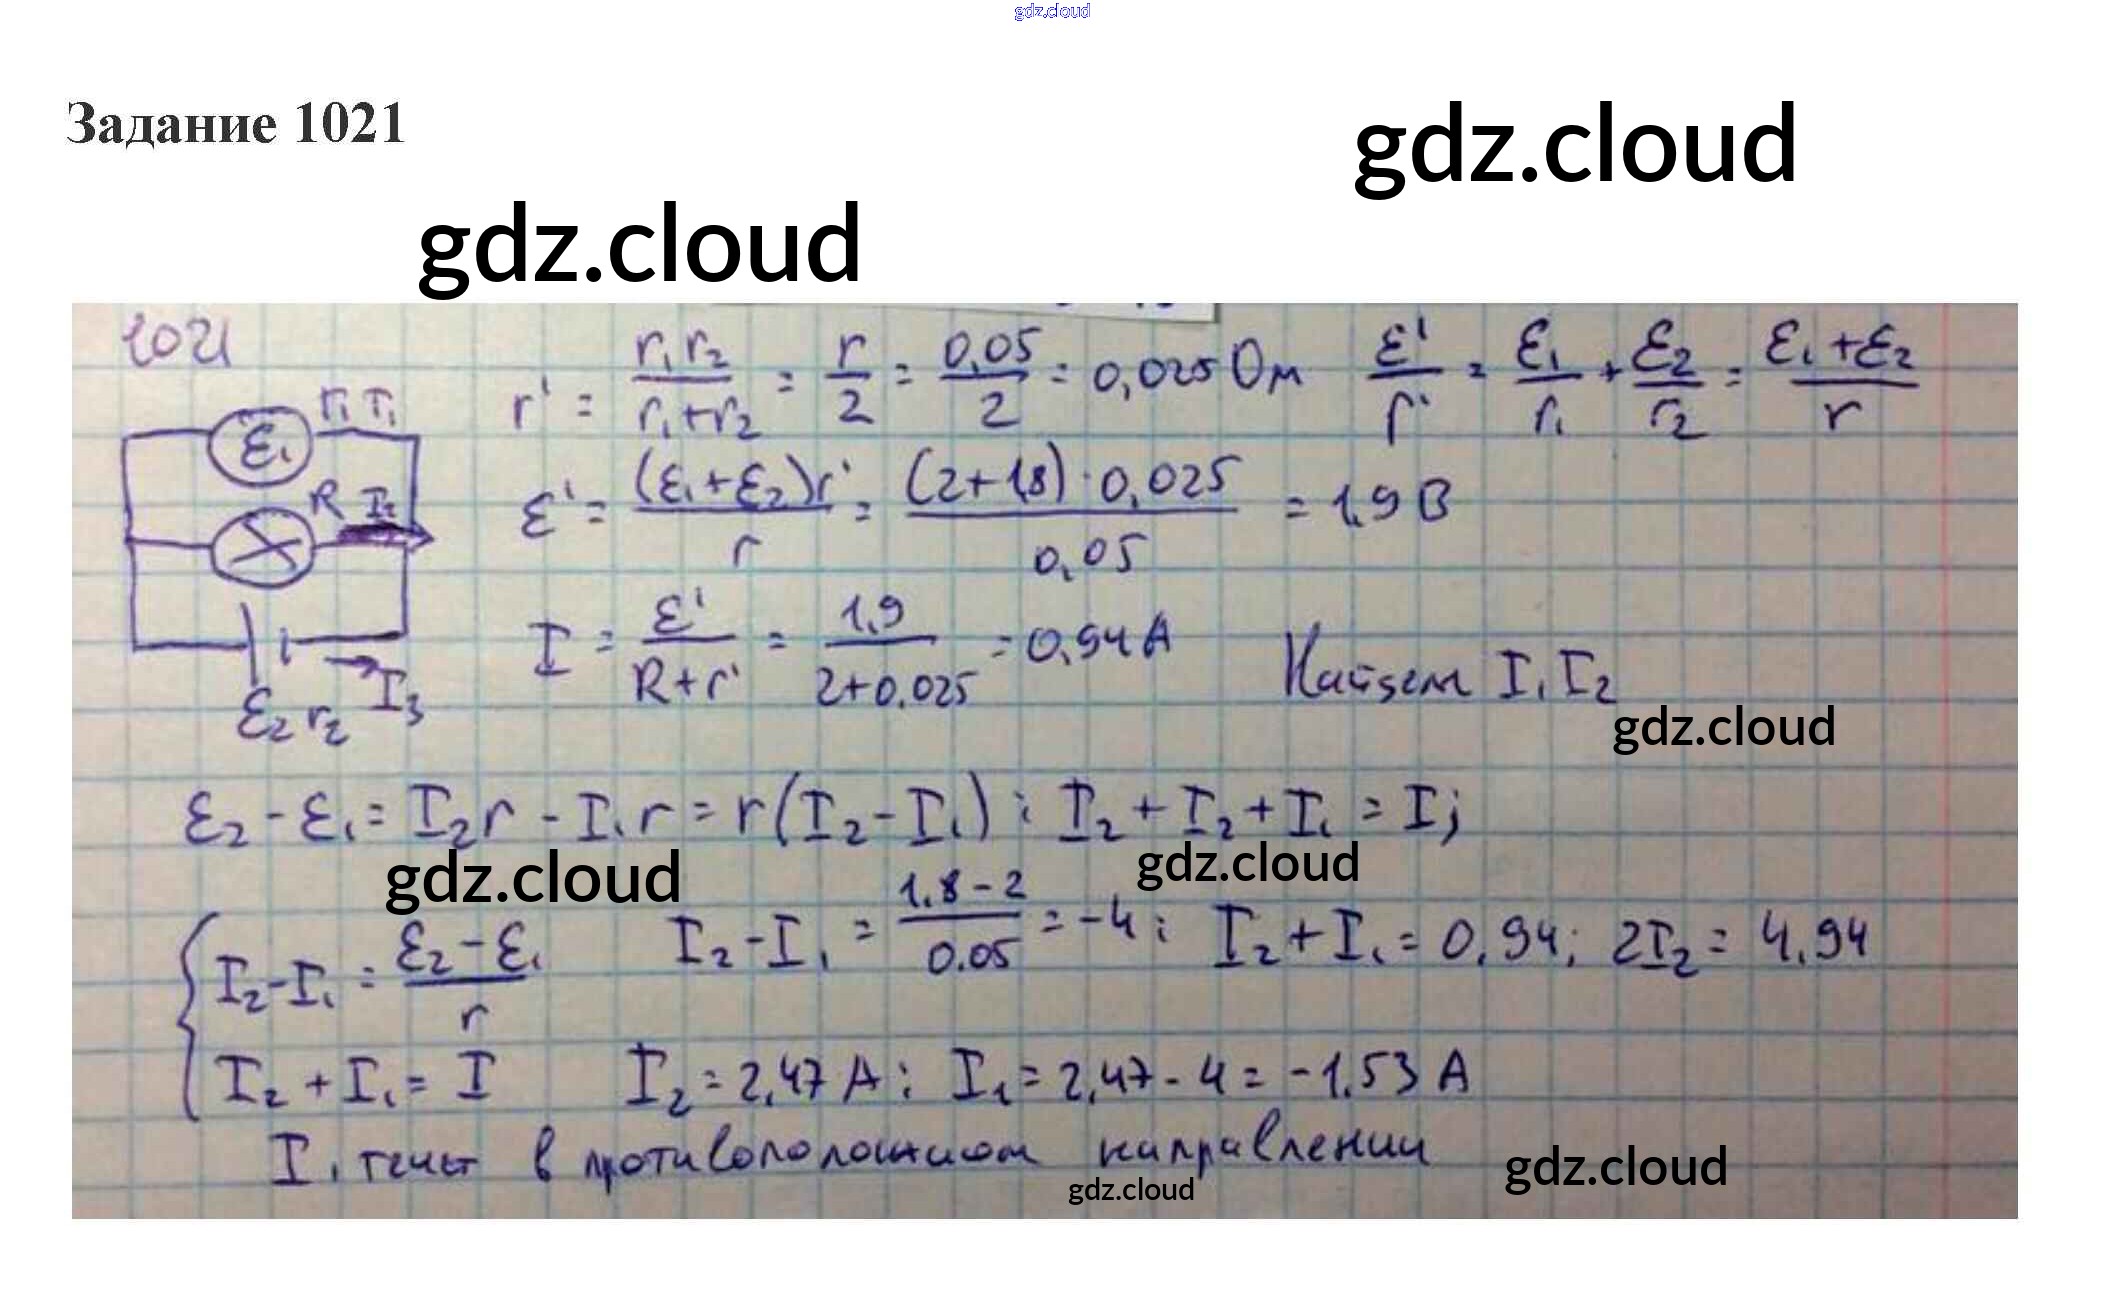 gdz.cloud
Задание 1021
gdz.cloud
gdz.cloud
1021
r' = r₁r₂/(r₁+r₂) = r/2 = 0,05/2 = 0,025 Ом   ε'/r' = ε₁/r₁ + ε₂/r₂ = (ε₁+ε₂)/r
ε₁
R I₂
ε' = (ε₁+ε₂)r'/r = (2+1,8)·0,025/0,05 = 1,9 В
I = ε'/(R+r') = 1,9/(2+0.025) = 0,94 А   Найдем I₁ I₂
ε₂ r₂ I₃
gdz.cloud
ε₂ - ε₁ = I₂r - I₁r = r(I₂-I₁); I₂ + I₂ + I₁ = I;
gdz.cloud
gdz.cloud
{ I₂-I₁ = (ε₂-ε₁)/r   I₂-I₁ = (1.8-2)/0.05 = -4; I₂+I₁ = 0,94; 2I₂ = 4.94
I₂ + I₁ = I   I₂ = 2,47 А; I₁ = 2,47-4 = -1.53 А
I₁ течет в противоположном направлении
gdz.cloud
gdz.cloud